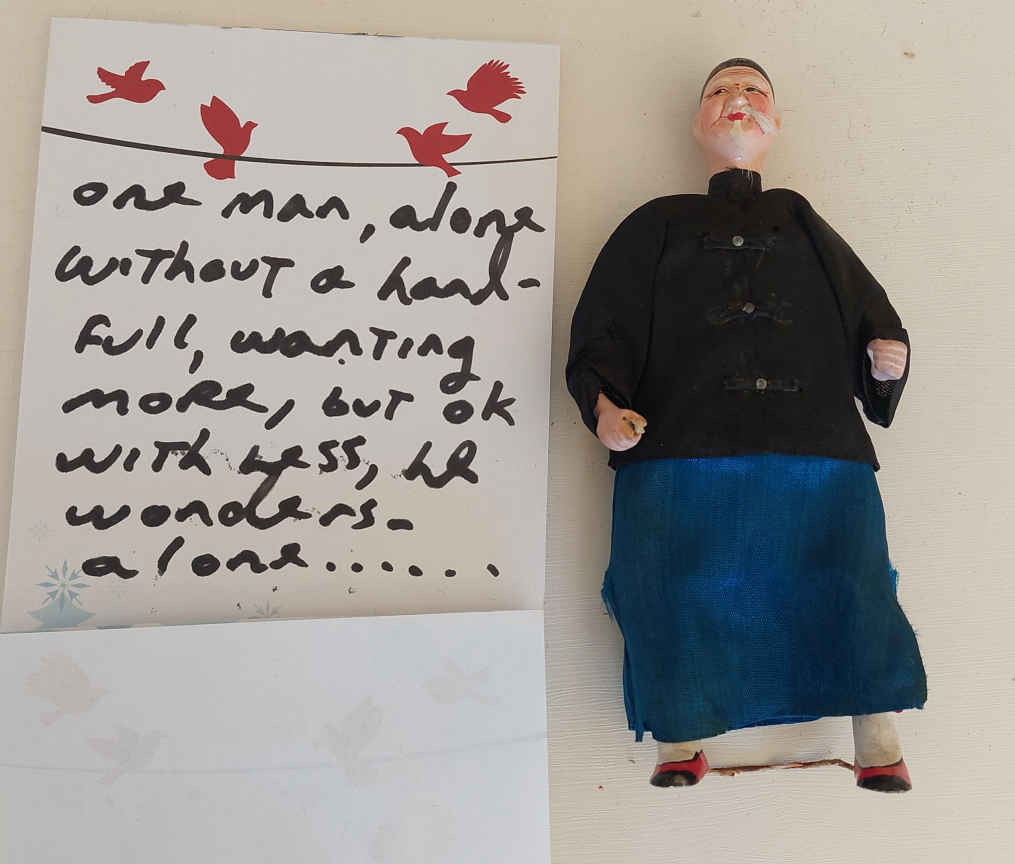 one man, alone
without a hand-
full, wanting
more, but ok
with less, he
wonders-
alone......